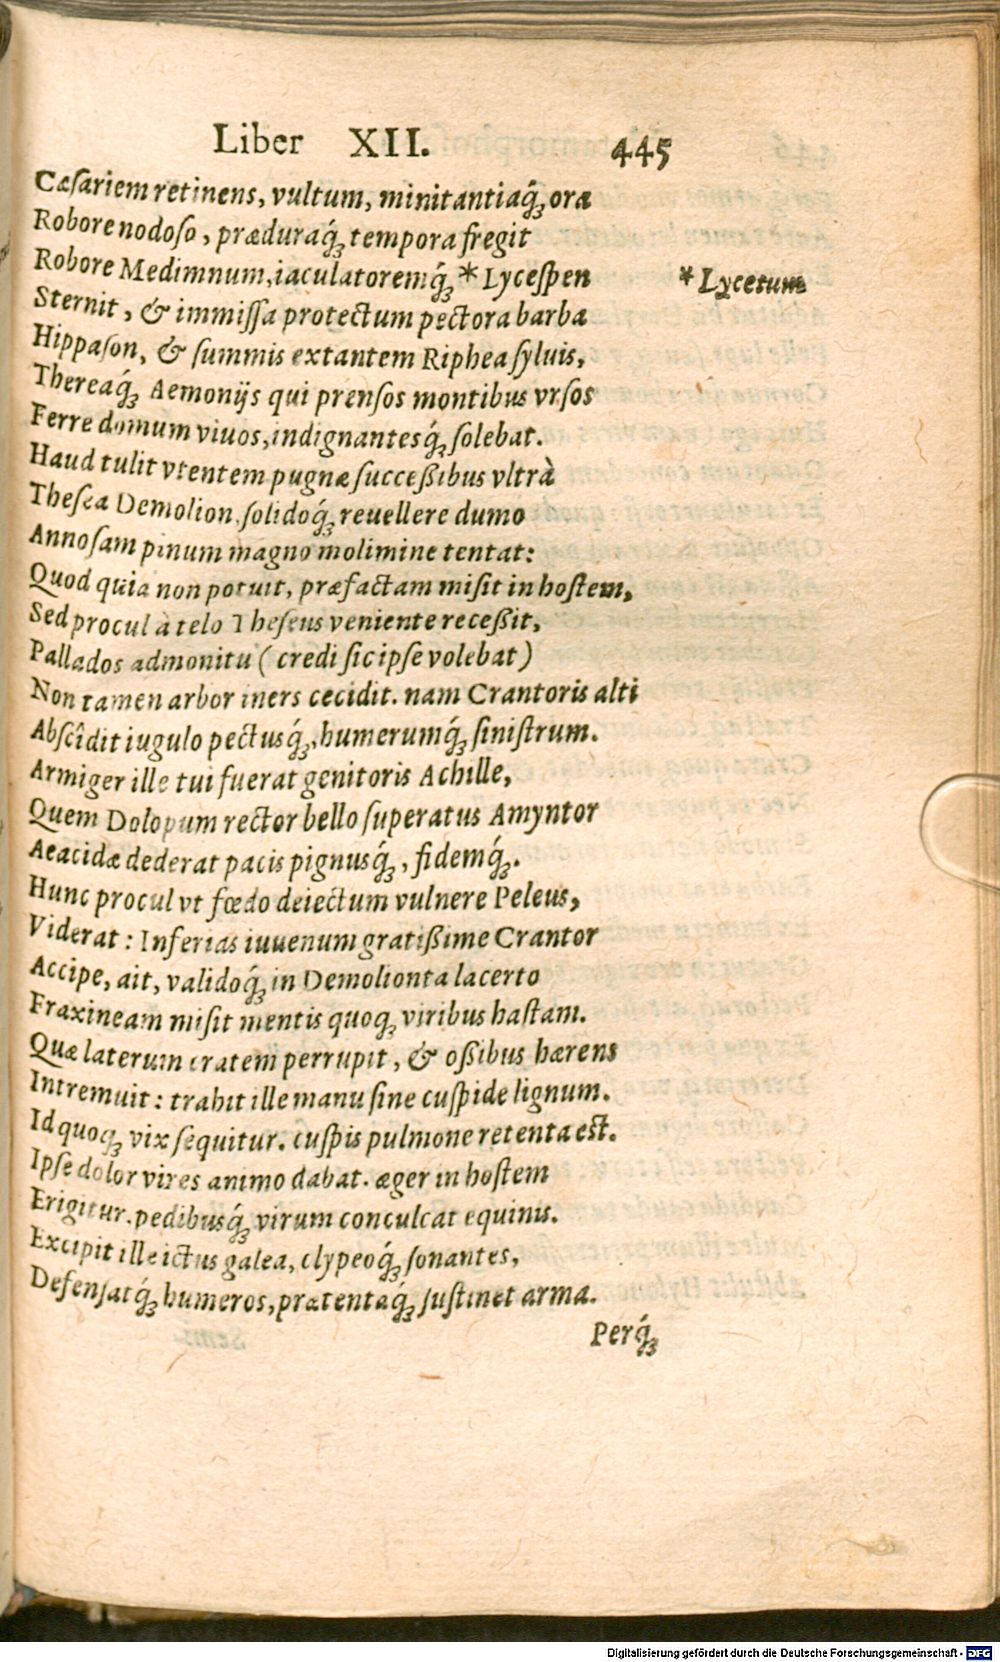 Liber XII. 445
Cæsariem retinens, vultum, minitantiaq́ꝫ ora
Robore nodoso, præduraq́ꝫ tempora fregit
Robore Medimnum, iaculatoremq́ꝫ * Lycespen
* Lycetum
Sternit, & immissa protectum pectora barba
Hippason, & summis extantem Riphea syluis,
Thereaq́ꝫ Aemonijs qui prensos montibus vrsos
Ferre domum viuos, indignantesq́ꝫ solebat.
Haud tulit vtentem pugnæ successibus vltrà
Thesea Demolion. solidoq́ꝫ reuellere dumo
Annosam pinum magno molimine tentat:
Quod quia non potuit, præfactam misit in hostem,
Sed procul à telo Theseus veniente recessit,
Pallados admonitu (credi sic ipse volebat)
Non tamen arbor iners cecidit. nam Crantoris alti
Abscîdit iugulo pectusq́ꝫ, humerumq́ꝫ sinistrum.
Armiger ille tui fuerat genitoris Achille,
Quem Dolopum rector bello superatus Amyntor
Aeacidæ dederat pacis pignusq́ꝫ, fidemq́ꝫ.
Hunc procul vt fœdo deiectum vulnere Peleus,
Viderat: Inferias iuuenum gratissime Crantor
Accipe, ait, validoq́ꝫ in Demolionta lacerto
Fraxineam misit mentis quoqꝫ viribus hastam.
Quæ laterum cratem perrupit, & ossibus hærens
Intremuit: trahit ille manu sine cuspide lignum.
Id quoqꝫ vix sequitur. cuspis pulmone retenta est.
Ipse dolor vires animo dabat. æger in hostem
Erigitur. pedibusq́ꝫ virum conculcat equinis.
Excipit ille ictus galea, clypeoq́ꝫ sonantes,
Defensatq́ꝫ humeros, prætentaq́ꝫ sustinet arma.
Perq́ꝫ
Digitalisierung gefördert durch die Deutsche Forschungsgemeinschaft - DFG